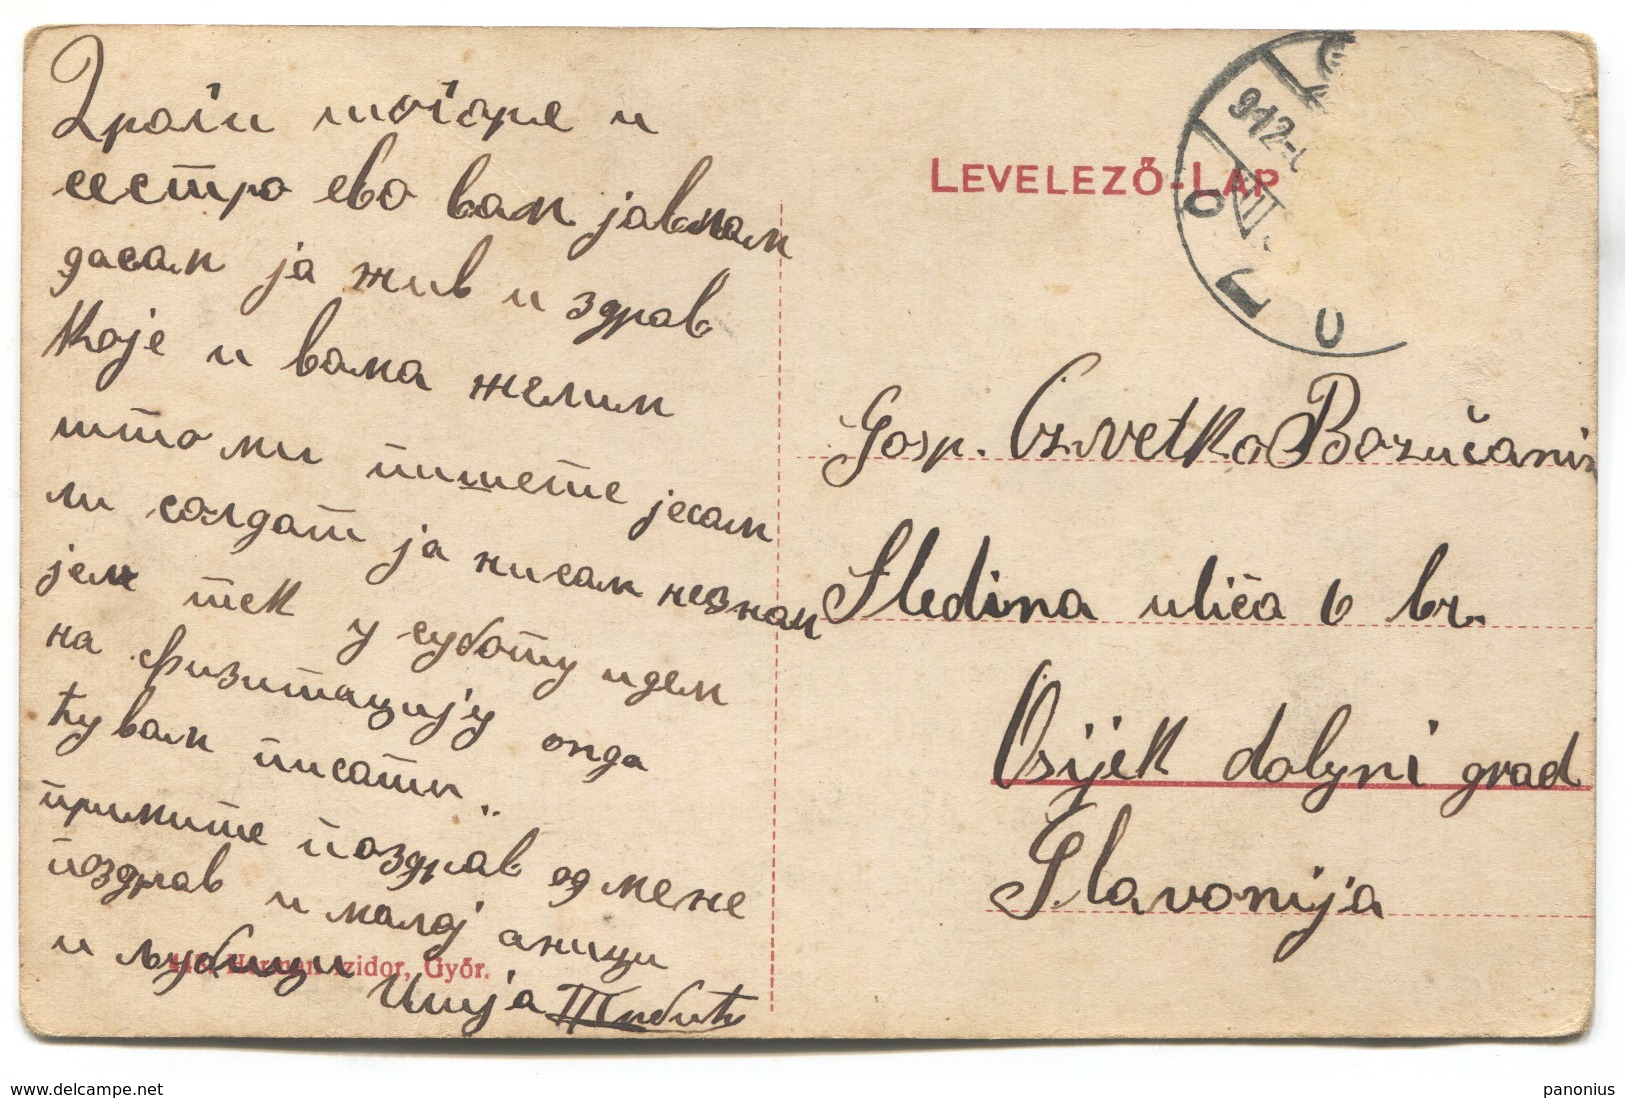 Драги шогоре и
сестро ево вам јављам
дасам ја жив и здрав
Које и вама желим
што ми пишете јесам
ли солдат ја нисам незнам
јел тек у суботу идем
на физитацију онда
ћу вам писати..
примите поздрав од мене
поздрав и малој аници
и љубици Илија Трбић
LEVELEZŐ-LAP
912
Gosp. Czvetko Bozučanin
Sledina uliča 6 br.
Osijek dolyni grad
Slavonija
Herman Izidor, Győr.
delcampe.net
panonius